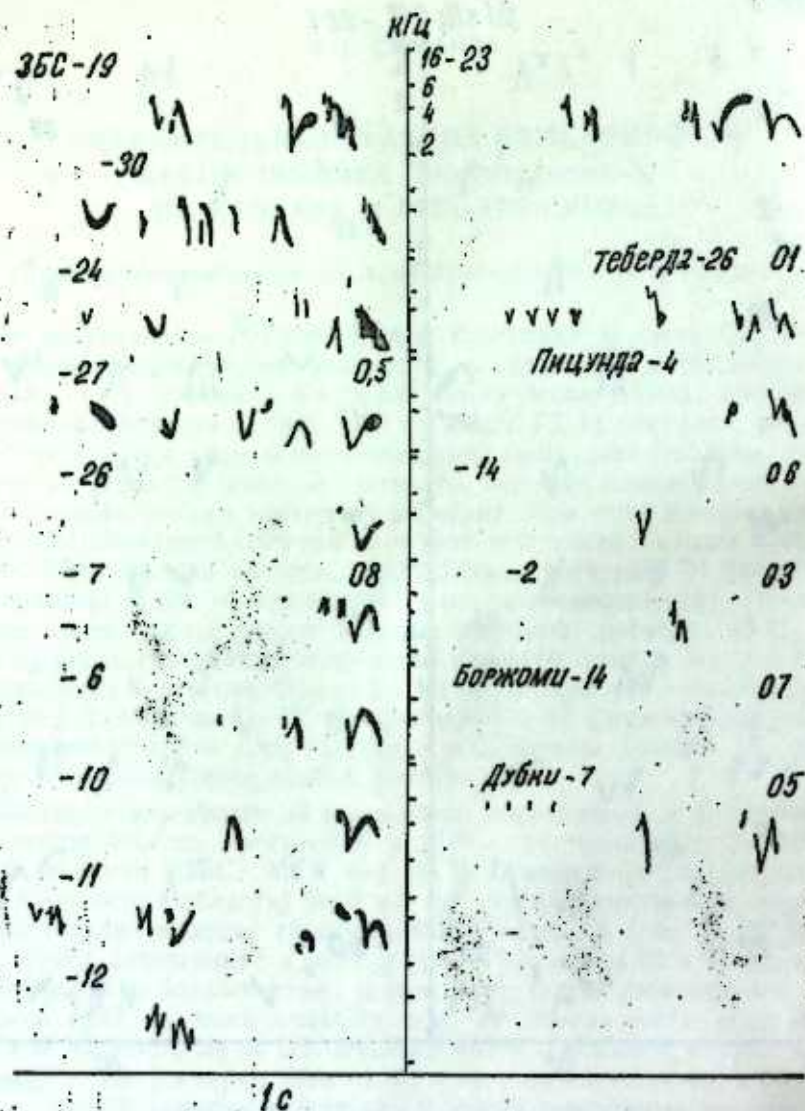 кГц
ЗБС-19
16-23
6
4
2
-30
-24
Теберда-26 01
-27
0,5
Пицунда-4
-26
-14 06
-7
08
-2 03
-6
Боржоми-14 07
-10
Дубки-7 05
-11
-12
1с